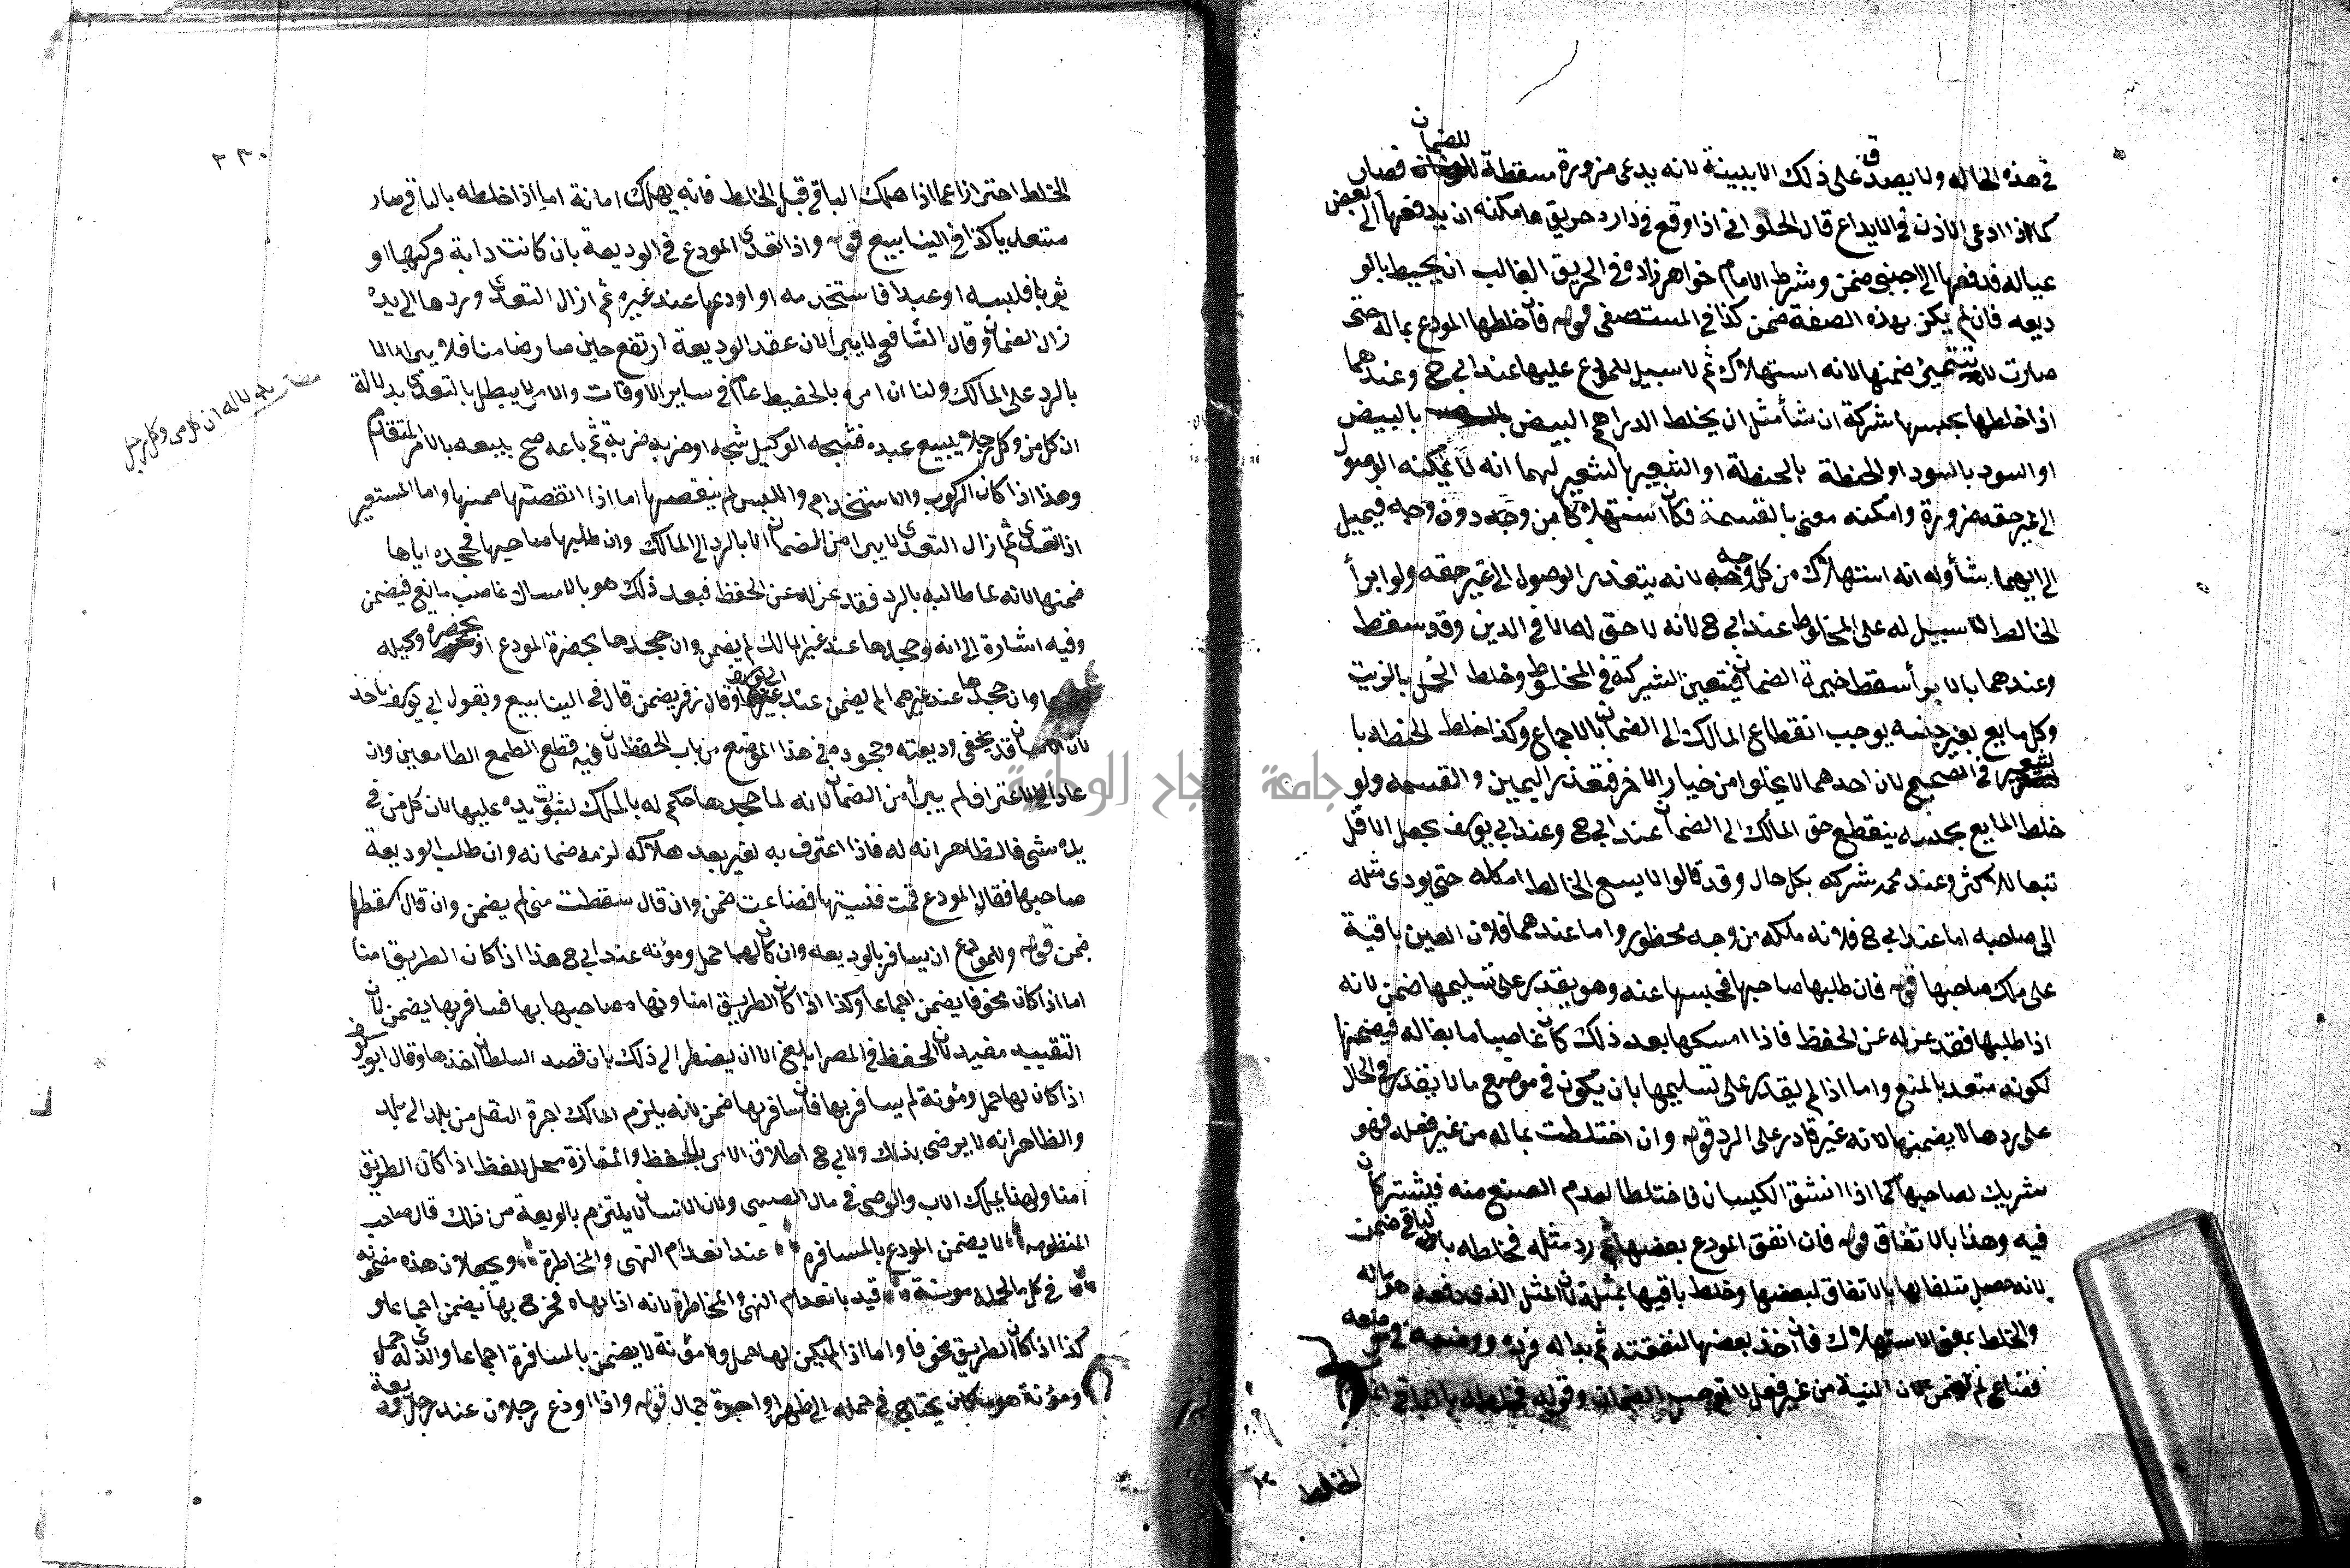 في هذه الحاله ولا يصدق على ذلك الا ببينة لانه يدعي ضرورة مسقطة للضمان فصار
كما اذا ادعى الاذن في الايداع قال الحلواني اذا وقع في داره حريق فامكنه ان يدفعها الى بعض
عياله فدفعها الى اجنبي ضمن وشرط الامام خواهرزاده في الحريق الغالب ان يحيط بالو
ديعه فان لم يكن بهذه الصفة ضمن كذا في المستصفى قوله فان خلطها المودع بماله حتى
صارت لا تتميز ضمنها لانه استهلاك ثم لا سبيل للمودع عليها عند ابي ح وعندهما
اذا خلطها بجنسها شركة ان شا مثل ان يخلط الدراهم البيض بالبيض
او السود بالسود او الحنطة بالحنطة او الشعير بالشعير لهما انه لا يمكنه الوصول
الى غير حقه ضرورة وامكنه معنى بالقسمة فكان استهلاكا من وجه دون وجه فيميل
الى ايهما شا وله انه استهلاك من كل وجه لانه يتعذر الوصول الى غير حقه ولو ابرأ
الخالط لا سبيل له على المخلوط عند ابي ح لانه لا حق له الا في الدين وقد سقط
وعندهما بالابرأ سقط خيرة الضمان فيتعين الشركة في المخلوط وخلط الخل بالزيت
وكل مايع بغير جنسه يوجب انقطاع المالك الى الضمان بالاجماع وكذا خلط الحنطه با
لشعير في الصحيح لان احدهما لا يخلوا من خيار الاخر فتعذر اليمين والقسمه ولو
خلط المايع بجنسه ينقطع حق المالك الى الضمان عند ابي ح وعند ابي يوسف يجعل الاقل
تبعا للاكثر وعند محمد شركه بكل حال وقد قالوا لا يسع الخالط اكله حتى يودي مثله
الى صاحبه اما عند ابي ح فلانه ملكه من وجه محظور واما عندهما فلان العين باقية
على ملك صاحبها قوله فان طلبها صاحبها فحبسها عنه وهو يقدر على تسليمها ضمن لانه
اذا طلبها فقد عزله عن الحفظ فاذا امسكها بعد ذلك كان غاصبا مانعا له فيضمنها
لكونه متعد بالمنع واما اذا لم يقدر على تسليمها بان يكون في موضع ما لا يقدر في الحال
على ردها لا يضمنها لانه غير قادر على الرد قوله وان اختلطت بماله من غير فعله فهو
شريك لصاحبها كما اذا انشق الكيسان فاختلطا لعدم الصنع منه فيشتركان
فيه وهذا بالاتفاق قوله فان انفق المودع بعضها ثم رد مثله فخلطه بالباقي ضمن
لانه حصل متلفا لها بالاتفاق لبعضها وخلط باقيها بمثله لان المثل الذي دفعه هو ماله
والخلط بمعنى الاستهلاك فان اخذ بعضها لنفقته ثم بدا له فرده ووضعه في موضعه
فضاع لم يضمن لان النية من غير فعل لا توجب الضمان وقوله فخلطه بالباقي
الخلط
٣٣٠
الخلط احترازا عما اذا هلك الباقي قبل الخلط فانه يهلك امانة اما اذا خلطه بالباقي صار
متعديا كذا في الينابيع قوله واذا تعدى المودع في الوديعة بان كانت دابة فركبها او
ثوبا فلبسه او عبدا فاستخدمه او اودعها عند غيره ثم ازال التعدي وردها الى يده
زال الضمان وقال الشافعي لا يبرا لان عقد الوديعة ارتفع حين صار ضامنا فلا يبرا الا
بالرد على المالك ولنا ان امره بالحفظ عام في ساير الاوقات والامر لا يبطل بالتعدي بدلالة
ان كل من وكل رجلا يبيع عبده فشجه الوكيل شجه او ضربه ضربة ثم باعه صح ببيعه بالامر المتقدم
وهذا اذا كان الركوب والاستخدام واللبس لم ينقصها اما اذا انقصتها ضمنها واما المستعير
اذا تعدى ثم ازال التعدي لا يبرا من الضمان الا بالرد الى المالك وان طلبها صاحبها فجحده اياها
ضمنها لانه لما طالبه بالرد فقد عزله عن الحفظ فبعد ذلك هو بالامساك غاصب مانع فيضمن
وفيه اشارة الى انه لو جحدها عند غير المالك لم يضمن وان جحدها بحضرة المودع او بحضرة وكيله
وان جحدها عند غيرهما لم يضمن عند ابي يوسف وقال زفر يضمن قال في الينابيع وبقول ابي يوسف ناخذ
لان الانسان قد يخفي وديعته وجحوده في هذا الموضع من باب الحفظ لان فيه قطع الطمع الطامعين وان
عاد الى الاعتراف لم يبرأ من الضمان لانه لما جحدها حكم له بالملك لثبوت يده عليها لان كل من في
يده شي فالظاهر انه له فاذا اعترف به لغير بعد هلاكه لزمه ضمانه وان طلب الوديعة
صاحبها فقال المودع قمت فنسيتها فضاعت ضمن وان قال سقطت مني لم يضمن وان قال اسقطها
ضمن قوله وللمودع ان يسافر بالوديعه وان كان لها حمل ومؤنه عند ابي ح هذا اذا كان الطريق امنا
اما اذا كان مخوفا يضمن اجماعا وكذا اذا كان الطريق امنا ونهاه صاحبها بها فسافر بها يضمن لان
التقييد مفيد لان الحفظ في المصر ابلغ الا ان يضطر الى ذلك بان قصد السلطان اخذها وقال ابو يوسف
اذا كان لها حمل ومؤنة لم يسافر بها فان سافر بها ضمن لانه يلزم المالك اجرة النقل من بلد الى بلد
والظاهر انه لا يرضى بذلك ولابي ح اطلاق الامر بالحفظ والمفازة محل للحفظ اذا كان الطريق
امنا ولهذا يملك الاب والوصي في مال الصبي ولان الانسان يلتزم بالوديعة من ذلك قال صاحب
المنظومه لا يضمن المودع بالمسافره عند انعدام النهي والمخاطرة ويجعلان هذه مضمونه
في كل ما لحمله مونة قيد بانعدام النهي والمخاطرة لانه اذا نهاه فخرج بها يضمن اجماعا و
كذا اذا كان الطريق مخوفا واما اذا لم يكن لها حمل ولا مؤنة لا يضمن بالمسافرة اجماعا والذي له حمل
ومؤنة هو ما كان يحتاج في حمله الى ظهر او اجرة حمال قوله واذا اودع رجلان عند رجل وديعة